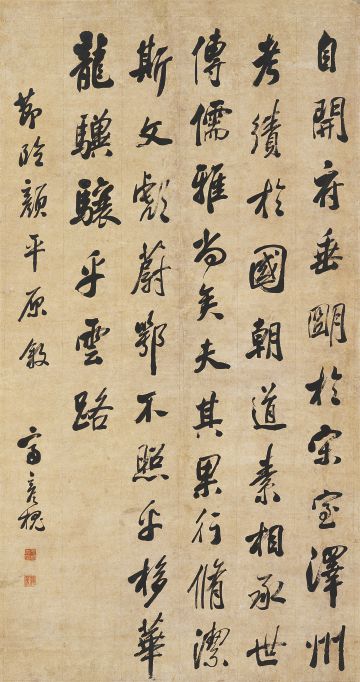 自開府垂朙於宋室澤州
考績於國朝道素相承世
傳儒雅尚矣夫其果行脩潔
斯文彪蔚鄂不照乎栘華
龍驥驤乎雲路
節臨顏平原敘 齊彥槐